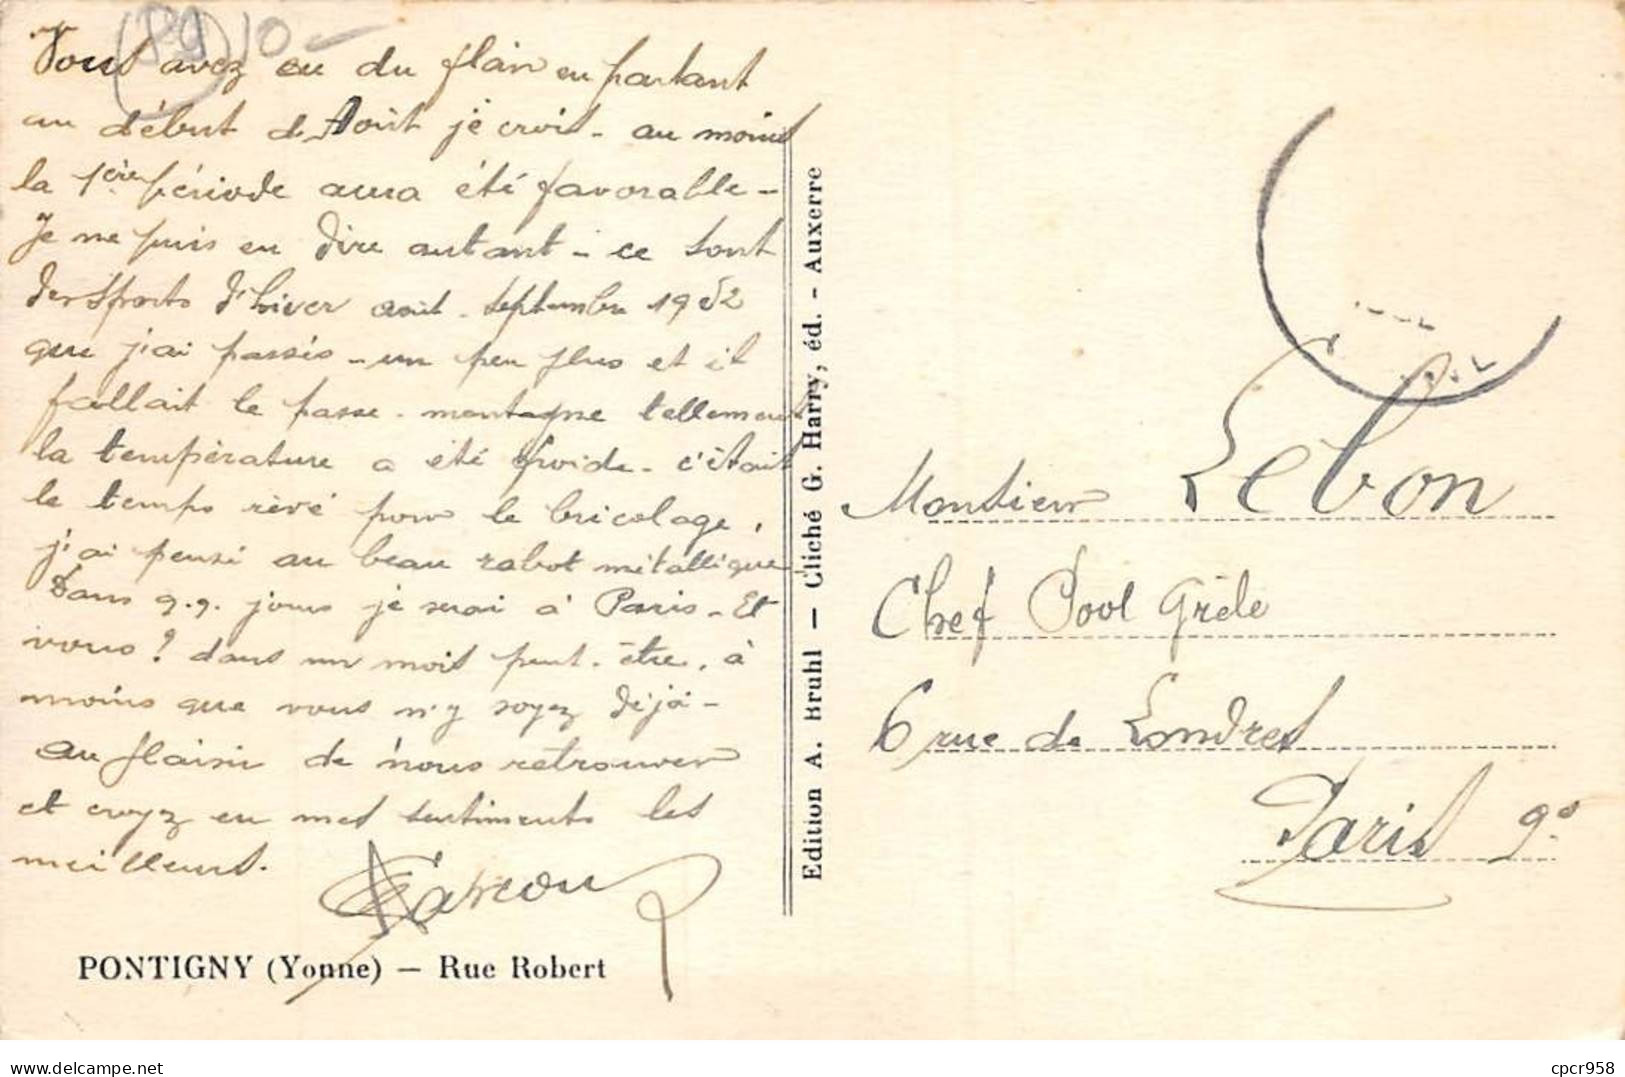 (89) 10 -
Vous avez eu du flair en partant
au début d'Août je crois - au moins
la 1ère période aura été favorable -
Je ne puis en dire autant - ce sont
des Sports d'hiver août - septembre 1952
que j'ai passés - un peu plus et il
fallait le passe - montagne tellement
la température a été froide - c'était
le temps rêvé pour le bricolage,
j'ai pensé au beau rabot métallique
Dans q.q. jours je serai à Paris - Et
vous ? dans un mois peut-être, à
moins que vous n'y soyez déjà -
au plaisir de nous retrouver
et croyez en mes sentiments les
meilleurs.
PONTIGNY (Yonne) — Rue Robert
Edition A. Bruhl — Cliché G. Harry, éd. - Auxerre
Monsieur Lebon
Chef Pool Grèle
6 rue de Londres
Paris 9e
delcampe.net
cpcr958